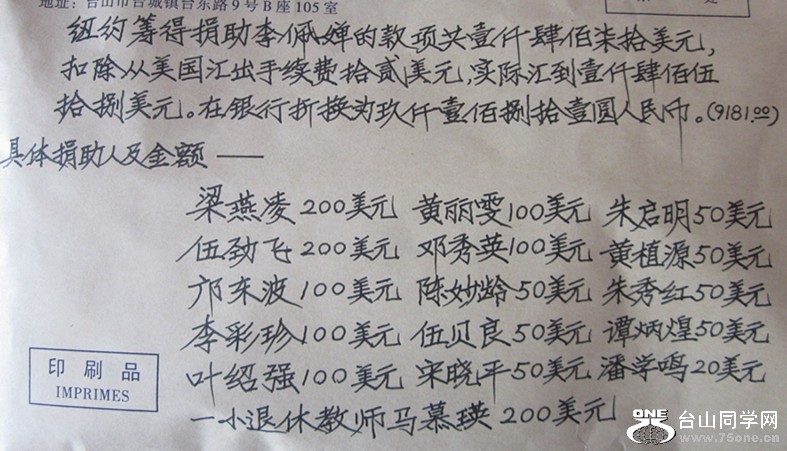 地址：台山市台城镇台东路9号B座105室
纽约筹得捐助李佩婵的款项共壹仟肆佰柒拾美元，
扣除从美国汇出手续费拾贰美元，实际汇到壹仟肆佰伍
拾捌美元。在银行折换为玖仟壹佰捌拾壹圆人民币。(9181.00)
具体捐助人及金额——
梁燕凌200美元 黄丽雯100美元 朱启明50美元
伍劲飞200美元 邓秀英100美元 黄植源50美元
邝东波100美元 陈妙龄50美元 朱秀红50美元
李彩珍100美元 伍贝良50美元 谭炳煌50美元
叶绍强100美元 宋晓平50美元 潘学鸣20美元
一小退休教师马慕瑛200美元
印刷品
IMPRIMES
ONE 台山同学网
www.75one.cn